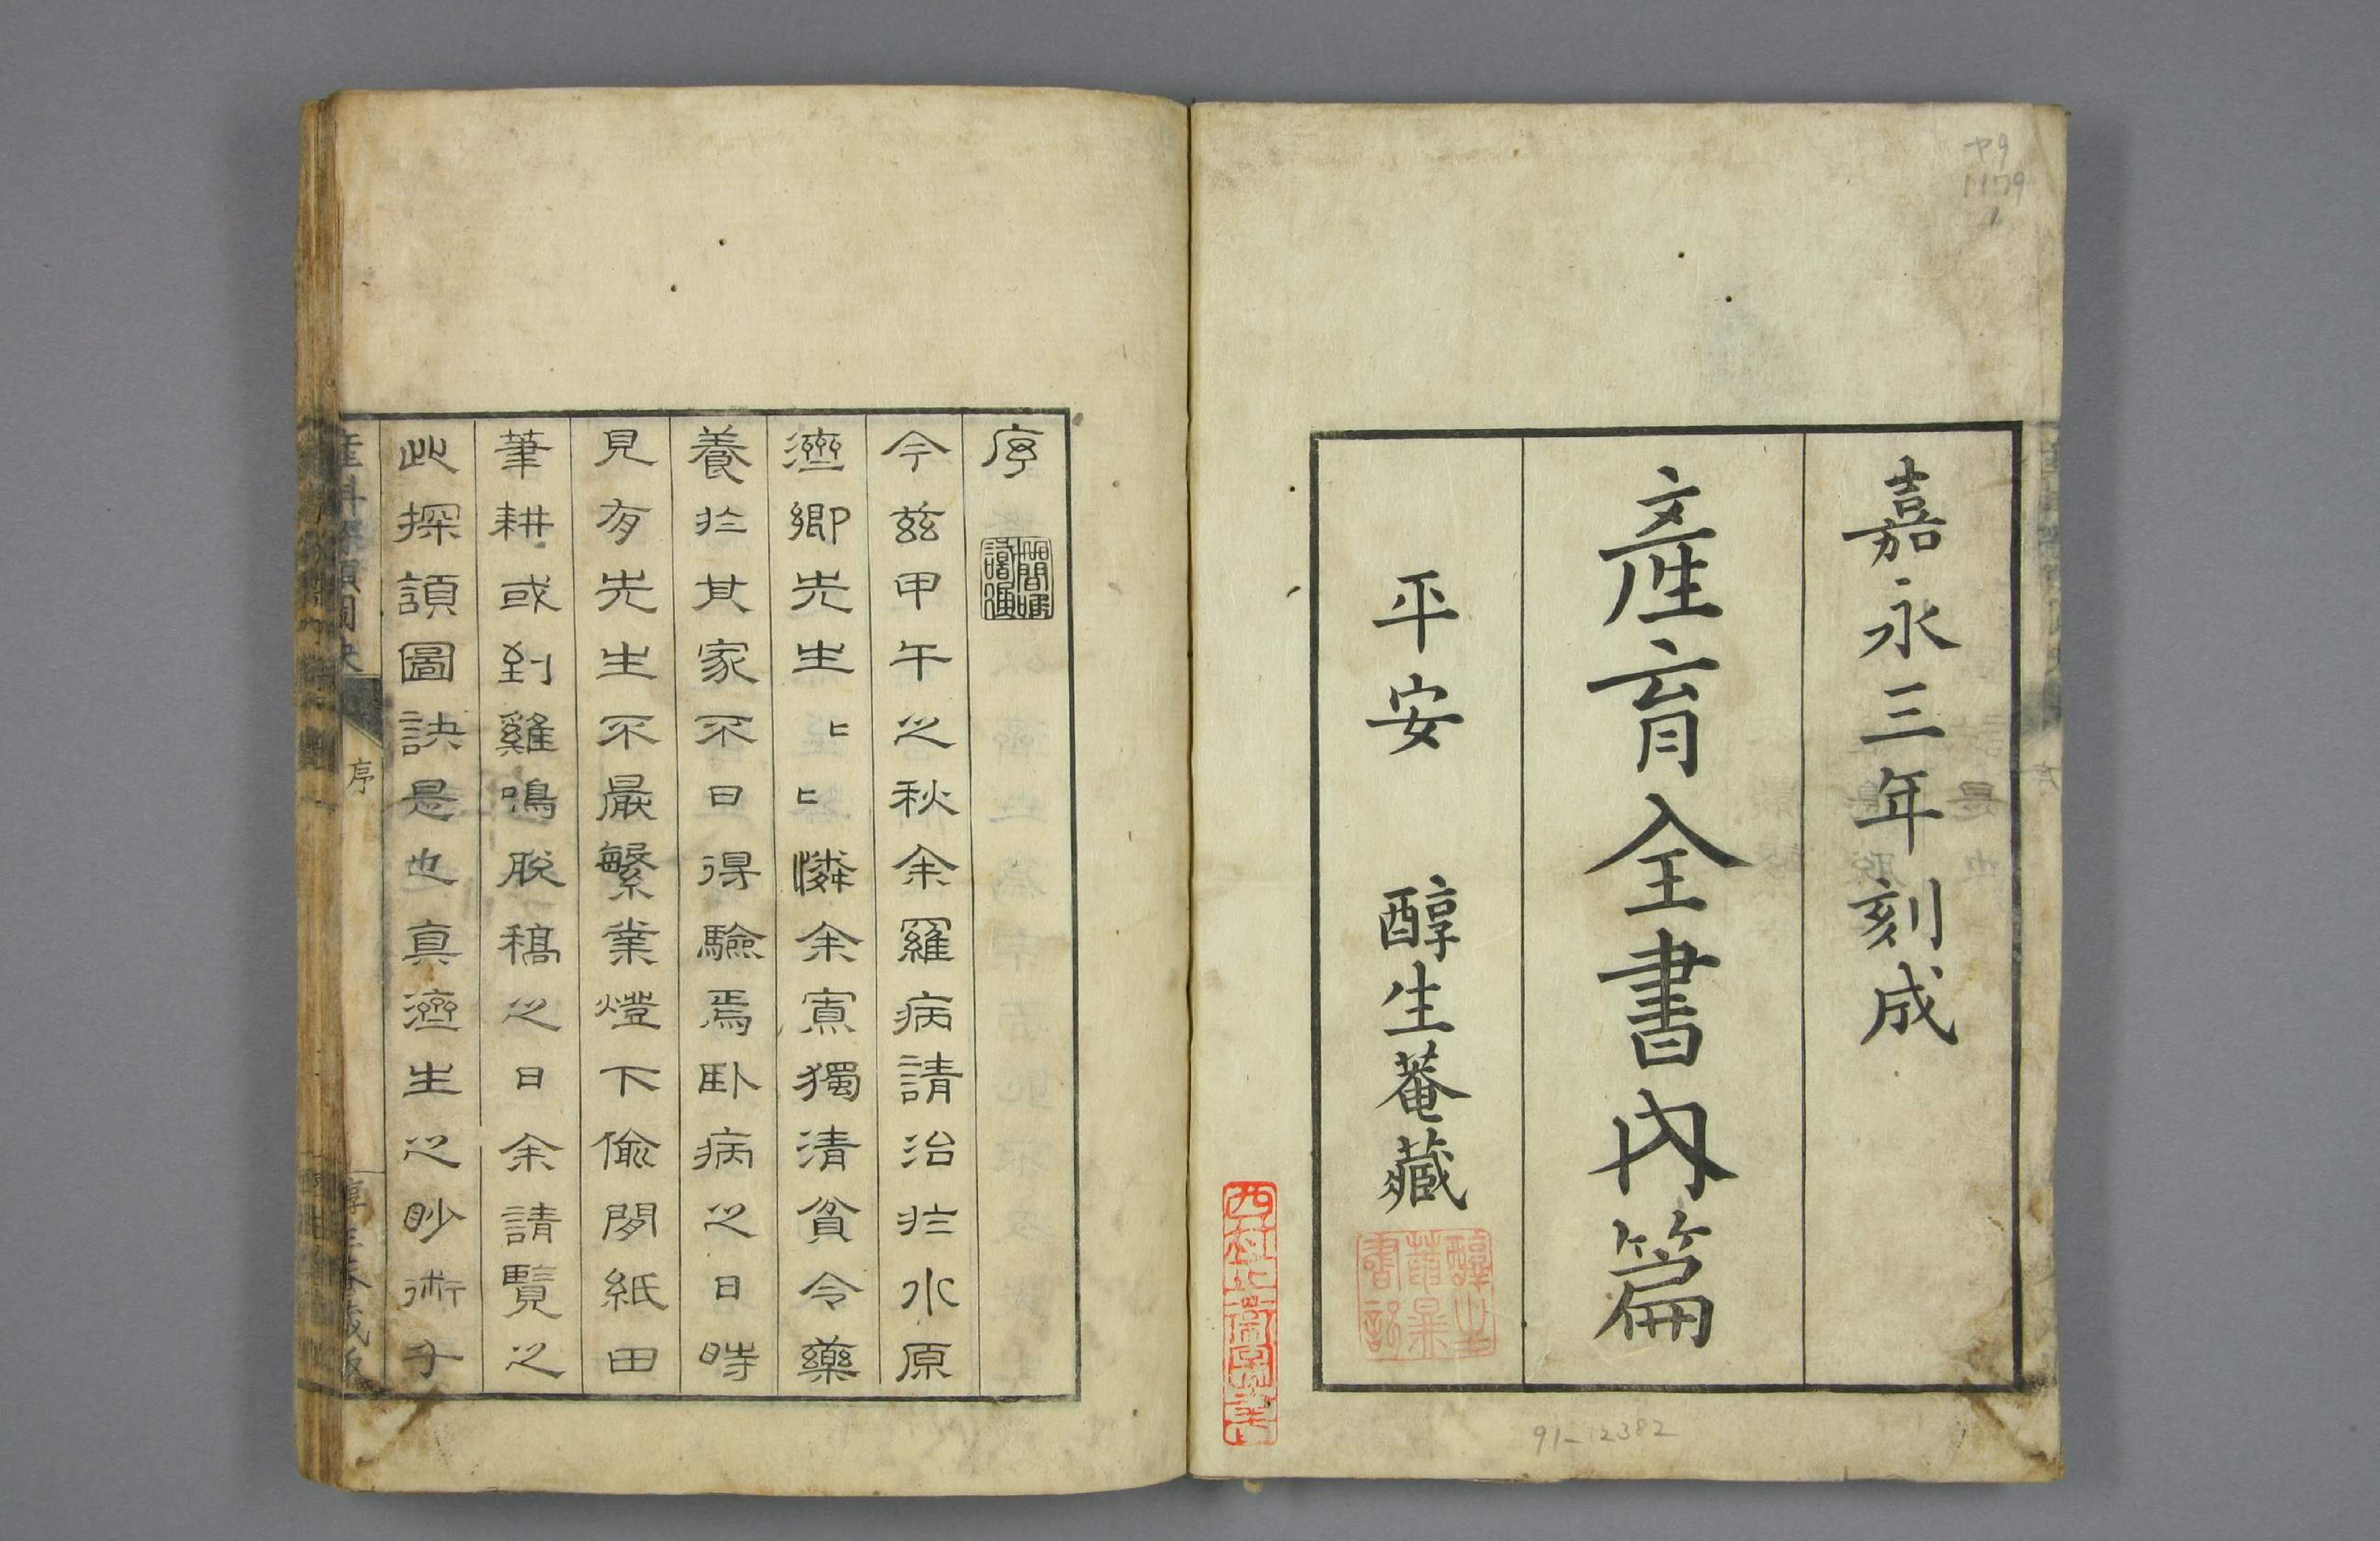 嘉永三年刻成
產育全書內篇
平安 醇生菴藏
ヤ9
1179
1
91-12382
序
今茲甲午之秋余羅病請治於水原
濟卿先生先生憐余寡獨清貧令藥
養於其家不日得驗焉臥病之日時
見有先生不嚴繁業燈下偸閑紙田
筆耕或到雞鳴脫稿之日余請覽之
此探頷圖訣是也真濟生之眇術乎
序